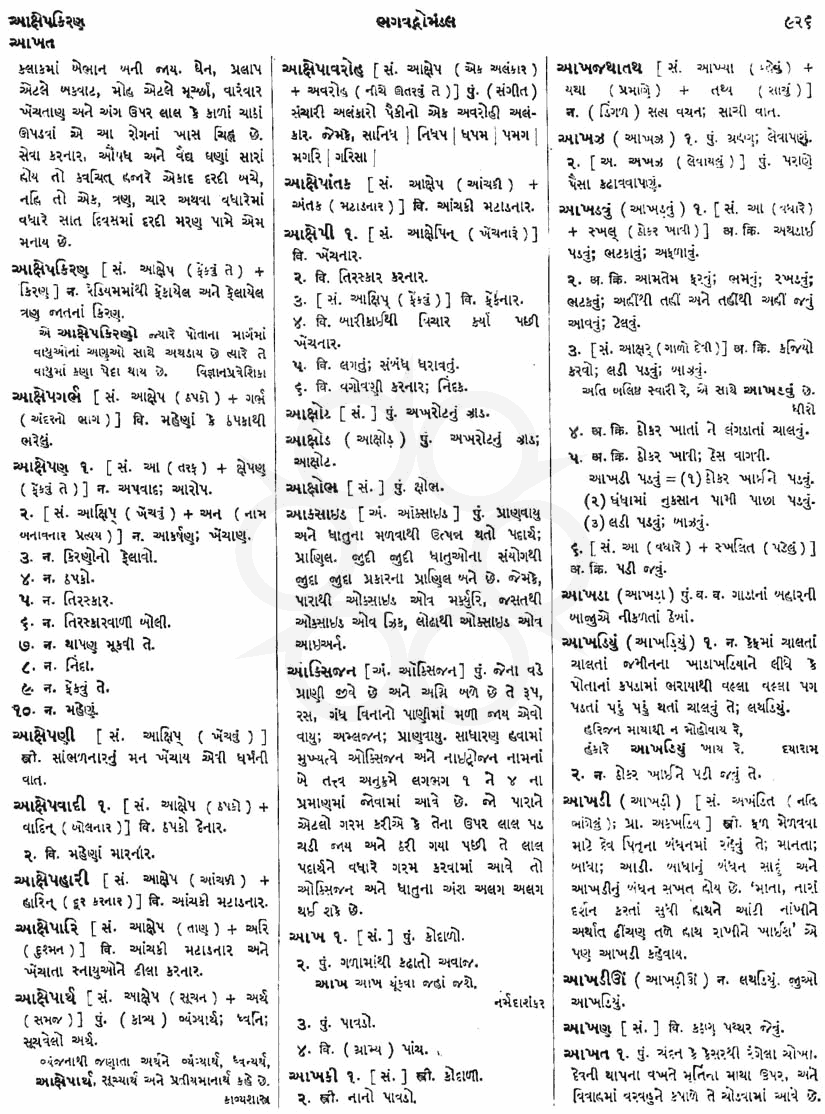 આક્ષેપકિરણ
ભગવદ્ગોમંડલ
૯૨૬
આખત
કલાકમાં બેભાન બની જાય. ઘેન, પ્રલાપ
એટલે બકવાટ, મોહ એટલે મૂર્ચ્છા, વારંવાર
ખેંચતાણ અને અંગ ઉપર લાલ કે કાળાં ચાઠાં
ઊપડવાં એ આ રોગનાં ખાસ ચિહ્ન છે.
સેવા કરનાર, ઔષધ અને વૈદ્ય ઘણાં સારાં
હોય તો ક્વચિત્ હજારે એકાદ દરદી બચે,
નહિ તો એક, ત્રણ, ચાર અથવા વધારેમાં
વધારે સાત દિવસમાં દરદી મરણ પામે એમ
મનાય છે.
આક્ષેપકિરણ [ સં. આક્ષેપ ( ફેંકવું તે ) +
કિરણ ] ન. રેડિયમમાંથી ફેંકાયેલ અને ફેલાયેલ
ત્રણ જાતનાં કિરણ.
એ આક્ષેપકિરણો જ્યારે પોતાના માર્ગમાં
વાયુઓનાં અણુઓ સાથે અથડાય છે ત્યારે તે
વાયુમાં કણા પેદા થાય છે. વિજ્ઞાનપ્રવેશિકા
આક્ષેપગર્ભ [ સં. આક્ષેપ ( ઠપકો ) + ગર્ભ
( અંદરનો ભાગ ) ] વિ. મહેણાં કે ઠપકાથી
ભરેલું.
આક્ષેપણ ૧. [ સં. આ ( તરફ ) + ક્ષેપણ
( ફેંકવું તે ) ] ન. અપવાદ; આરોપ.
૨. [ સં. આક્ષિપ્ ( ખેંચવું ) + અન ( નામ
બનાવનાર પ્રત્યય ) ] ન. આકર્ષણ; ખેંચાણ.
૩. ન. કિરણોનો ફેલાવો.
૪. ન. ઠપકો.
૫. ન. તિરસ્કાર.
૬. ન. તિરસ્કારવાળી બોલી.
૭. ન. થાપણ મૂકવી તે.
૮. ન. નિંદા.
૯. ન. ફેંકવું તે.
૧૦. ન. મહેણું.
આક્ષેપણી [ સં. આક્ષિપ્ ( ખેંચવું ) ]
સ્ત્રી. સાંભળનારનું મન ખેંચાય એવી ધર્મની
વાત.
આક્ષેપવાદી ૧. [ સં. આક્ષેપ ( ઠપકો ) +
વાદિન્ ( બોલનાર ) ] વિ. ઠપકો દેનાર.
૨. વિ. મહેણાં મારનાર.
આક્ષેપહારી [ સં. આક્ષેપ ( આંચકી ) +
હારિન્ ( દૂર કરનાર ) ] વિ. આંચકી મટાડનાર.
આક્ષેપારિ [ સં. આક્ષેપ ( તાણ ) + અરિ
( દુશ્મન ) ] વિ. આંચકી મટાડનાર અને
ખેંચાતા સ્નાયુઓને ઢીલા કરનાર.
આક્ષેપાર્થ [ સં. આક્ષેપ ( સૂચન ) + અર્થ
( સમજ ) ] પું. ( કાવ્ય ) વ્યંગ્યાર્થ; ધ્વનિ;
સૂચવેલો અર્થ.
વ્યંજનાથી જણાતા અર્થને વ્યંગ્યાર્થ, ધ્વન્યર્થ,
આક્ષેપાર્થ, સૂચ્યાર્થ અને પ્રતીયમાનાર્થ કહે છે.
કાવ્યશાસ્ત્ર
આક્ષેપાવરોહ [ સં. આક્ષેપ ( એક અલંકાર )
+ અવરોહ ( નીચે ઊતરવું તે ) ] પું. ( સંગીત )
સંચારી અલંકારો પૈકીનો એક અવરોહી અલં-
કાર. જેમકે, સાનિધ | નિધપ | ધપમ | પમગ |
મગરિ | ગરિસા |
આક્ષેપાંતક [ સં. આક્ષેપ ( આંચકી ) +
અંતક ( મટાડનાર ) ] વિ. આંચકી મટાડનાર.
આક્ષેપી ૧. [ સં. આક્ષેપિન્ ( ખેંચનારૂં ) ]
વિ. ખેંચનાર.
૨. વિ. તિરસ્કાર કરનાર.
૩. [ સં. આક્ષિપ્ ( ફેંકવું ) ] વિ. ફેંકનાર.
૪. વિ. બારીકાઈથી વિચાર કર્યા પછી
ખેંચનાર.
૫. વિ. લગતું; સંબંધ ધરાવતું.
૬. વિ. વગોવણી કરનાર; નિંદક.
આક્ષોટ [ સં. ] પું. અખરોટનું ઝાડ.
આક્ષોડ ( આક્ષોડ઼ ) પું. અખરોટનું ઝાડ;
આક્ષોટ.
આક્ષોભ [ સં. ] પું. ક્ષોભ.
આક્સાઇડ [ અં. ઑક્સાઇડ ] પું. પ્રાણવાયુ
અને ધાતુના મળવાથી ઉત્પન્ન થતો પદાર્થ;
પ્રાણિલ. જૂદી જૂદી ધાતુઓના સંયોગથી
જૂદા જૂદા પ્રકારના પ્રાણિલ બને છે. જેમકે,
પારાથી ઓક્સાઇડ ઓવ મર્ક્યુરિ, જસતથી
ઓક્સાઇડ ઓવ ઝિંક, લોઢાથી ઓક્સાઇડ ઓવ
આઇઅર્ન.
ઑક્સિજન [ અં. ઑક્સિજન ] પું. જેના વડે
પ્રાણી જીવે છે અને અગ્નિ બળે છે તે રૂપ,
રસ, ગંધ વિનાનો પાણીમાં મળી જાય એવો
વાયુ; અમ્લજન; પ્રાણવાયુ. સાધારણ હવામાં
મુખ્યત્વે ઓક્સિજન અને નાઇટ્રોજન નામનાં
બે તત્ત્વ અનુક્રમે લગભગ ૧ ને ૪ ના
પ્રમાણમાં જોવામાં આવે છે. જો પારાને
એટલો ગરમ કરીએ કે તેના ઉપર લાલ પડ
ચડી જાય અને ઠરી ગયા પછી તે લાલ
પદાર્થને વધારે ગરમ કરવામાં આવે તો
ઓક્સિજન અને ધાતુના અંશ અલગ અલગ
થઈ શકે છે.
આખ ૧. [ સં. ] પું. કોદાળો.
૨. પું. ગળામાંથી કઢાતો અવાજ.
આખ આખ થૂંકવા જહાં જશે.
નર્મદાશંકર
૩. પું. પાવડો.
૪. વિ. ( ગ્રામ્ય ) પાંચ.
આખકી ૧. [ સં. ] સ્ત્રી. કોદાળી.
૨. સ્ત્રી. નાનો પાવડો.
આખજથાતથ [ સં. આખ્યા ( કહેવું ) +
યથા ( પ્રમાણે ) + તથ્ય ( સાચું ) ]
ન. ( ડિંગળ ) સત્ય વચન; સાચી વાત.
આખઝ ( આખઝ઼ ) ૧. પું. ગ્રહણ; લેવાપણું.
૨. [ અ. અખઝ ( લેવાયલું ) ] પું. પરાણે
પૈસા કઢાવવાપણું.
આખડવું ( આખડ઼વું ) ૧. [ સં. આ ( વધારે )
+ સ્ખલ્ ( ઠોકર ખાવી ) ] અ. ક્રિ. અથડાઈ
પડવું; ભટકાવું; અફળાવું.
૨. અ. ક્રિ. આમતેમ ફરવું; ભમવું; રખડવું;
ભટકવું; અહીંથી તહીં અને તહીંથી અહીં જવું
આવવું; ટેલવું.
૩. [ સં. આક્ષર્ ( ગાળો દેવી ) ] અ. ક્રિ. કજિયો
કરવો; લડી પડવું; બાઝવું.
અતિ બલિષ્ઠ સ્વારી રે, એ સાથે આખડવું છે.
ધીરો
૪. અ. ક્રિ. ઠોકર ખાતાં ને લંગડાતાં ચાલવું.
૫. અ. ક્રિ. ઠોકર ખાવી; ઠેસ વાગવી.
આખડી પડવું = (૧) ઠોકર ખાઈને પડવું.
(૨) ધંધામાં નુકસાન પામી પાછા પડવું.
(૩) લડી પડવું; બાઝવું.
૬. [ સં. આ ( વધારે ) + સ્ખલિત ( પડેલું ) ]
અ. ક્રિ. પડી જવું.
આખડા ( આખડ઼ા ) પું. બ. વ. ગાડાનાં બહારની
બાજુએ નીકળતાં ઠેબાં.
આખડિયું ( આખડ઼િયું ) ૧. ન. કેફમાં ચાલતાં
ચાલતાં જમીનના ખાડાખડિયાને લીધે કે
પોતાનાં કપડામાં ભરાયાથી વલ્લા વલ્લા પગ
પડતાં પડું પડું થતાં ચાલવું તે; લથડિયું.
હરિજન માયાથી ન મોહોવાય રે,
હંકારે આખડિયું ખાય રે. દયારામ
૨. ન. ઠોકર ખાઈને પડી જવું તે.
આખડી ( આખડ઼ી ) [ સં. અખંડિત ( નહિ
ભાંગેલું ); પ્રા. અકખડિય ] સ્ત્રી. ફળ મેળવવા
માટે દેવ પિતૃના બંધનમાં રહેવું તે; માનતા;
બાધા; આડી. બાધાનું બંધન સાદું અને
આખડીનું બંધન સખત હોય છે. 'માતા, તારાં
દર્શન કરતાં સુધી હાથને આંટી નાંખીને
અર્થાત્ ઢીંચણ તળે હાથ રાખીને ખાઈશ' એ
પણ આખડી કહેવાય.
આખડીઊં ( આખડ઼ીઊં ) ન. લથડિયું. જીઓ
આખડિયું.
આખણ [ સં. ] વિ. કઠણ પથ્થર જેવું.
આખત ૧. પું. ચંદન કે કેસરથી રંગેલા ચોખા.
દેવની થાપના વખતે મૂર્તિના માથા ઉપર, અને
વિવાહમાં વરવહુને કપાળે તે ચોડવામાં આવે છે.